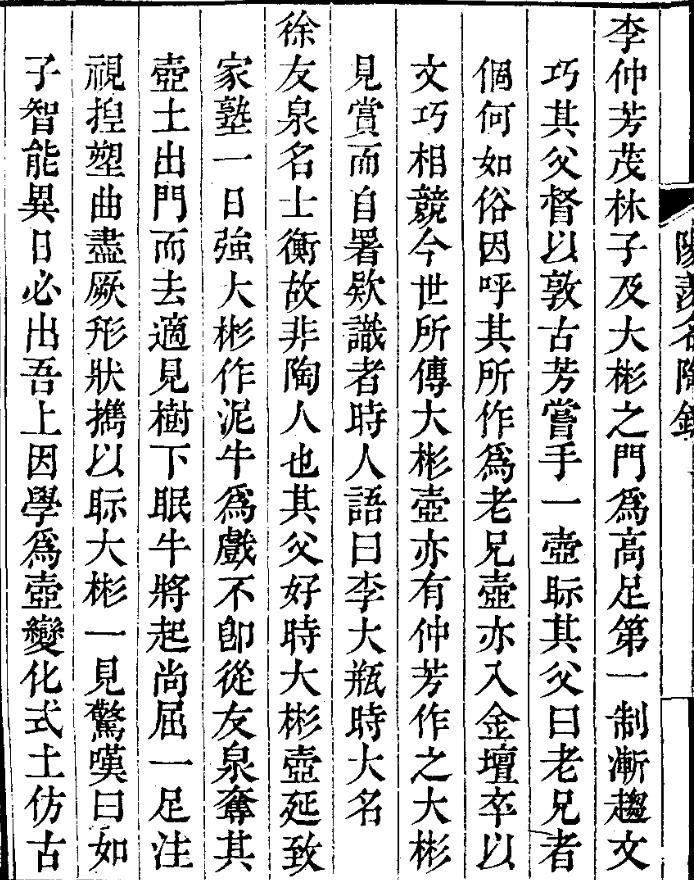 陽羨名陶錄
李仲芳茂林子及大彬之門爲高足第一制漸趨文
巧其父督以敦古芳嘗手一壺眎其父曰老兄者
個何如俗因呼其所作爲老兄壺亦入金壇卒以
文巧相競今世所傳大彬壺亦有仲芳作之大彬
見賞而自署欵識者時人語曰李大瓶時大名
徐友泉名士衡故非陶人也其父好時大彬壺延致
家塾一日強大彬作泥牛爲戲不卽從友泉奪其
壺土出門而去適見樹下眠牛將起尚屈一足注
視揑塑曲盡厥形狀攜以眎大彬一見驚嘆曰如
子智能異日必出吾上因學爲壺變化式土仿古